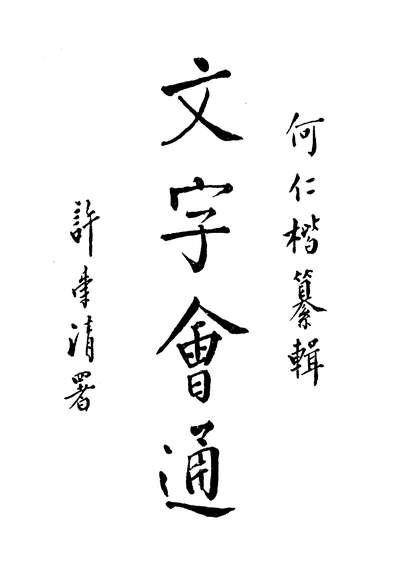 何仁楷纂輯
文字會通
許崇清署